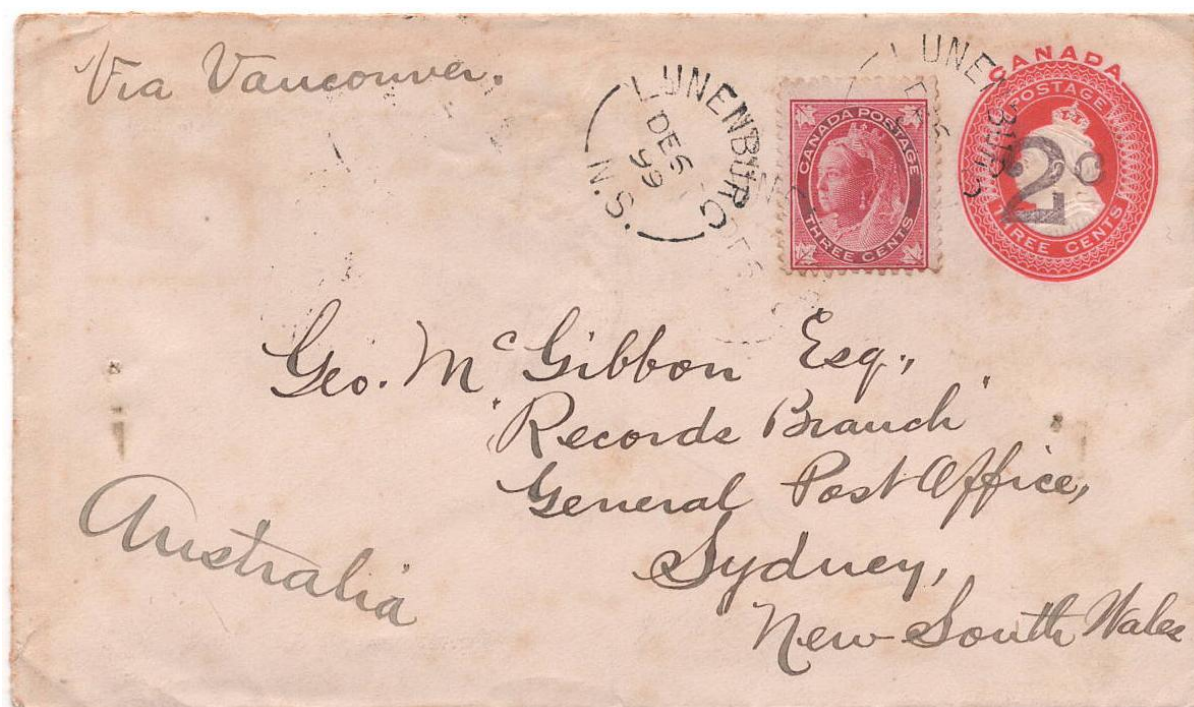 Via Vancouver.
LUNENBURG
DE 5
99
N.S.
CANADA POSTAGE
THREE CENTS
LUNENBURG
DE 5
CANADA
POSTAGE
2c
THREE CENTS
Geo. Mc Gibbon Esq.,
"Records Branch"
General Post Office,
Sydney,
New South Wales
Australia